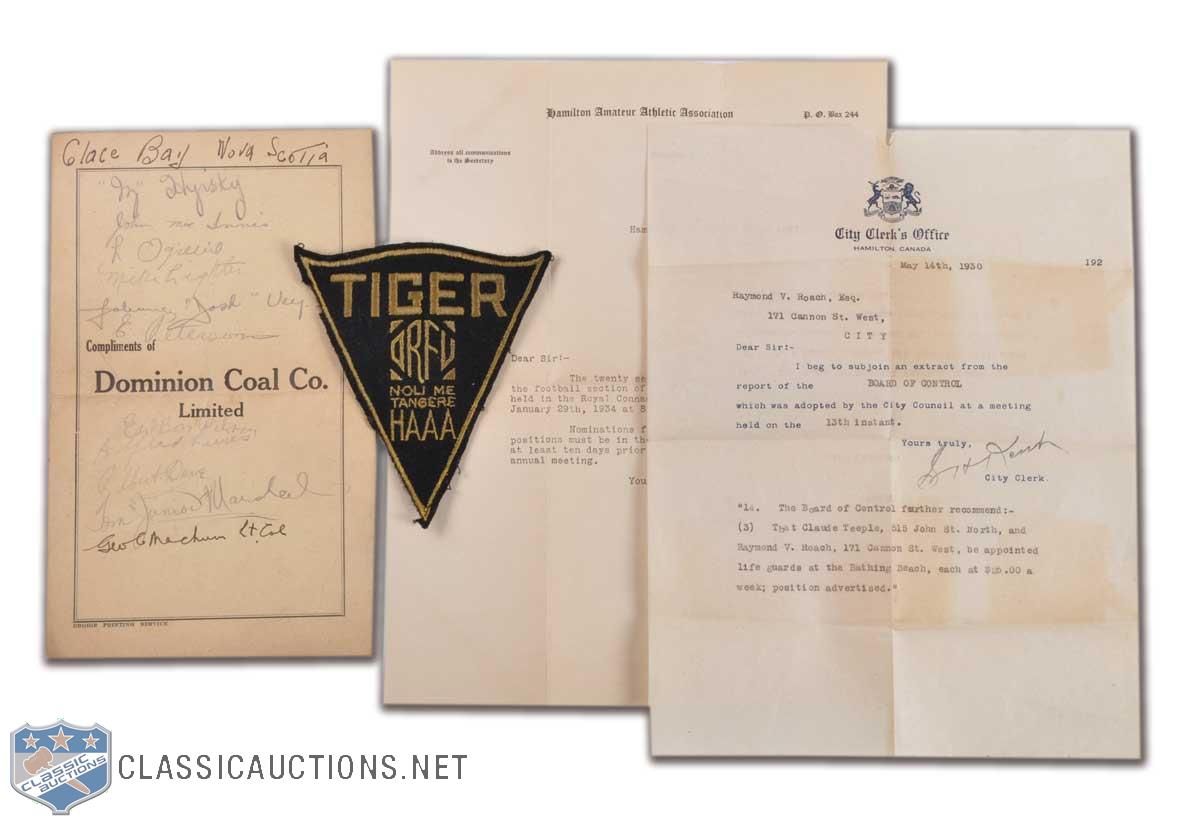 Glace Bay Nova Scotia
John Mc Innis
E. Peterson
Compliments of
Dominion Coal Co.
Limited
Albert Dove
Tom "Junior" Marshall
Geo C Machum Lt. Col
BRODIE PRINTING SERVICE
TIGER
ORFU
NOLI ME
TANGERE
HAAA
Hamilton Amateur Athletic Association
P. O. Box 244
Address all communications
to the Secretary
Ham
Dear Sir:-
The twenty se
the football section of
held in the Royal Conna
January 29th, 1934 at 8
Nominations f
positions must be in the
at least ten days prior
annual meeting.
You
City Clerk's Office
HAMILTON, CANADA
May 14th, 1930 192
Raymond V. Roach, Esq.
171 Cannon St. West,
CITY
Dear Sir:-
I beg to subjoin an extract from the
report of the BOARD OF CONTROL
which was adopted by the City Council at a meeting
held on the 13th instant.
Yours truly,
S H Kent
City Clerk.
"14. The Board of Control further recommend:-
(3) That Claude Teeple, 515 John St. North, and
Raymond V. Roach, 171 Cannon St. West, be appointed
life guards at the Bathing Beach, each at $25.00 a
week; position advertised."
CLASSIC
AUCTIONS
CLASSICAUCTIONS.NET